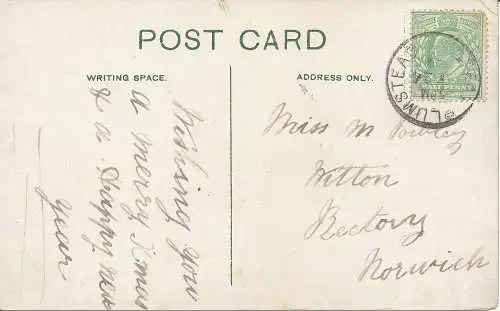 POST CARD
WRITING SPACE.
ADDRESS ONLY.
Wishing you
a merry Xmas
& a Happy new
year
Miss M
Witton
Rectory
Norwich